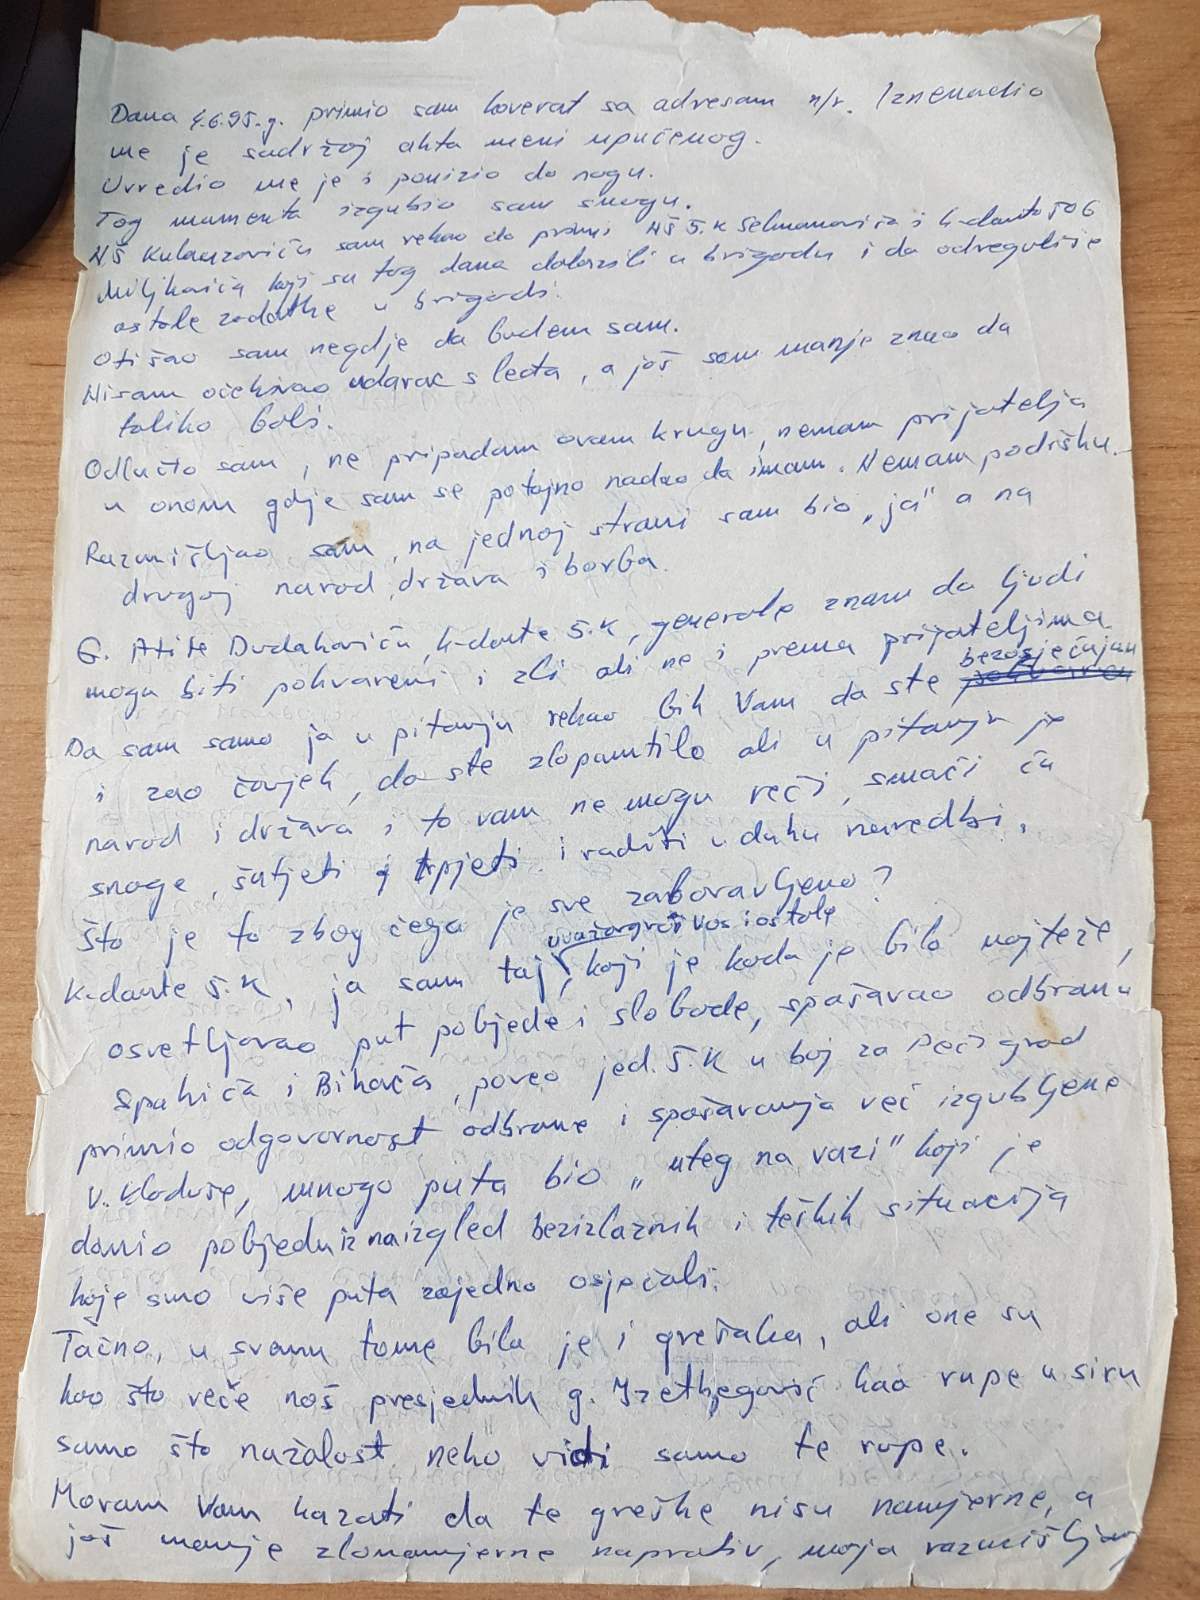 Dana 4.6.95.g. primio sam koverat sa adresam n/r. Iznenadio
me je sadržaj akta meni upućenog.
Uvredio me je i ponizio do nogu.
Tog momenta izgubio sam snagu.
NŠ sam rekao da primi NŠ 5.K Selmanovića i k-danta 506
Miljkovića koji su tog dana dolazili u brigadu i da odreguliše
ostale zadatke u brigadi.
Otišao sam negdje da budem sam.
Nisam očekivao udarac s leđa, a još sam manje znao da
toliko boli.
Odlučio sam, ne pripadam ovam krugu, nemam prijatelja
u onom gdje sam se potajno nadao da imam. Nemam podršku.
Razmišljao sam, na jednoj strani sam bio „ja" a na
drugoj narod, država i borba.
G. Atife Dudakoviću, k-dante 5.K, generale znam da ljudi
mogu biti pokvareni i zli ali ne i prema prijateljima
Da sam samo ja u pitanju rekao bih Vam da ste bezosjećajan
i zao čovjek, da ste zlopamtilo ali u pitanju je
narod i država i to vam ne mogu reći, smoći ću
snage, šutjeti i trpjeti i raditi u duhu naredbi.
Što je to zbog čega je sve zaboravljeno?
uvažavajući Vas i ostale
K-dante 5.K, ja sam taj, koji je kada je bilo najteže,
osvetljavao put pobjede i slobode, spašavao odbranu
Spahića i Bihaća, poveo jed. 5.K u boj za Pećigrad
primio odgovornost odbrane i spašavanja već izgubljene
V. Kladuše, mnogo puta bio „uteg na vazi" koji je
donio pobjedu iz naizgled bezizlaznih i teških situacija
koje smo više puta zajedno osjećali.
Tačno, u svemu tome bila je i grešaka, ali one su
kao što reče naš presjednik g. Izetbegović kao rupe u siru
samo što nažalost neko vidi samo te rupe.
Moram Vam kazati da te greške nisu namjerne, a
još manje zlonamjerne naprotiv, moja razmišljanja